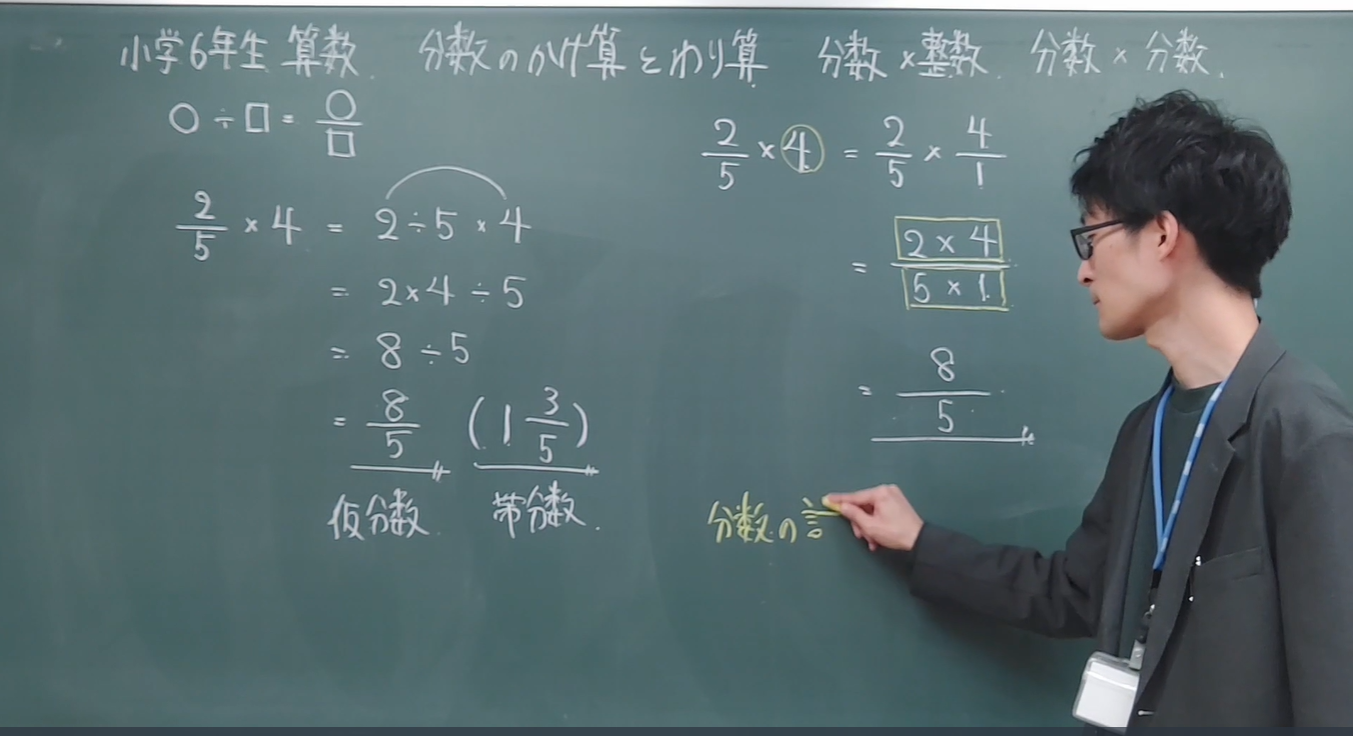 小学6年生 算数. 分数のかけ算とわり算 分数×整数. 分数×分数.
○÷□=○/□
2/5×4=2÷5×4
=2×4÷5
=8÷5
=8/5 (1 3/5)
仮分数. 帯分数.
2/5×4=2/5×4/1
=2×4/5×1
=8/5
分数の言